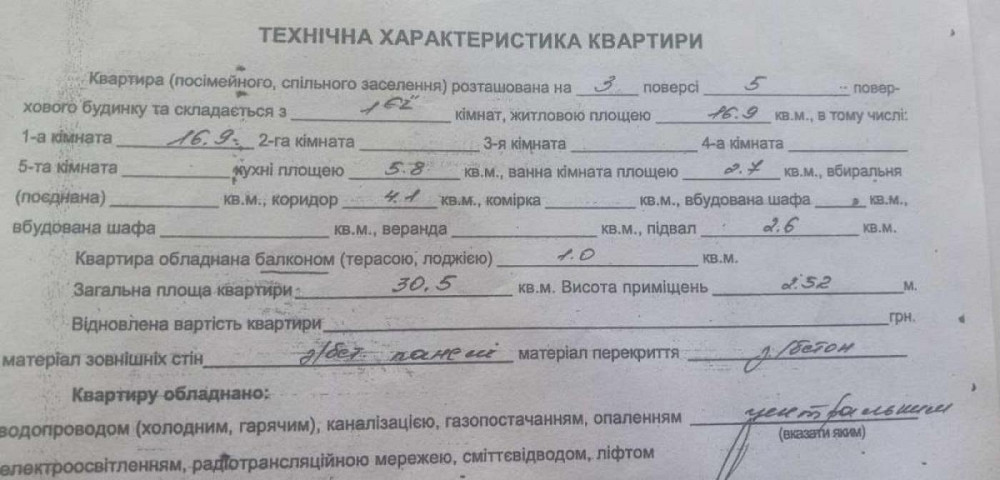 ТЕХНІЧНА ХАРАКТЕРИСТИКА КВАРТИРИ
Квартира (посімейного, спільного заселення) розташована на 3 поверсі 5 повер-
хового будинку та складається з кімнат, житловою площею 16.9 кв.м., в тому числі:
1-а кімната 16.9 2-га кімната 3-я кімната 4-а кімната
5-та кімната кухні площею 5.8 кв.м., ванна кімната площею 2.7 кв.м., вбиральня
(поєднана) кв.м., коридор 4.1 кв.м., комірка кв.м., вбудована шафа кв.м.,
вбудована шафа кв.м., веранда кв.м., підвал 2.6 кв.м.
Квартира обладнана балконом (терасою, лоджією) 1.0 кв.м.
Загальна площа квартири 30.5 кв.м. Висота приміщень 2.52 м.
Відновлена вартість квартири грн.
матеріал зовнішніх стін з/бет панелі матеріал перекриття з/бетон
Квартиру обладнано:
водопроводом (холодним, гарячим), каналізацією, газопостачанням, опаленням центральним
(вказати яким)
електроосвітленням, радіотрансляційною мережею, сміттєвідводом, ліфтом